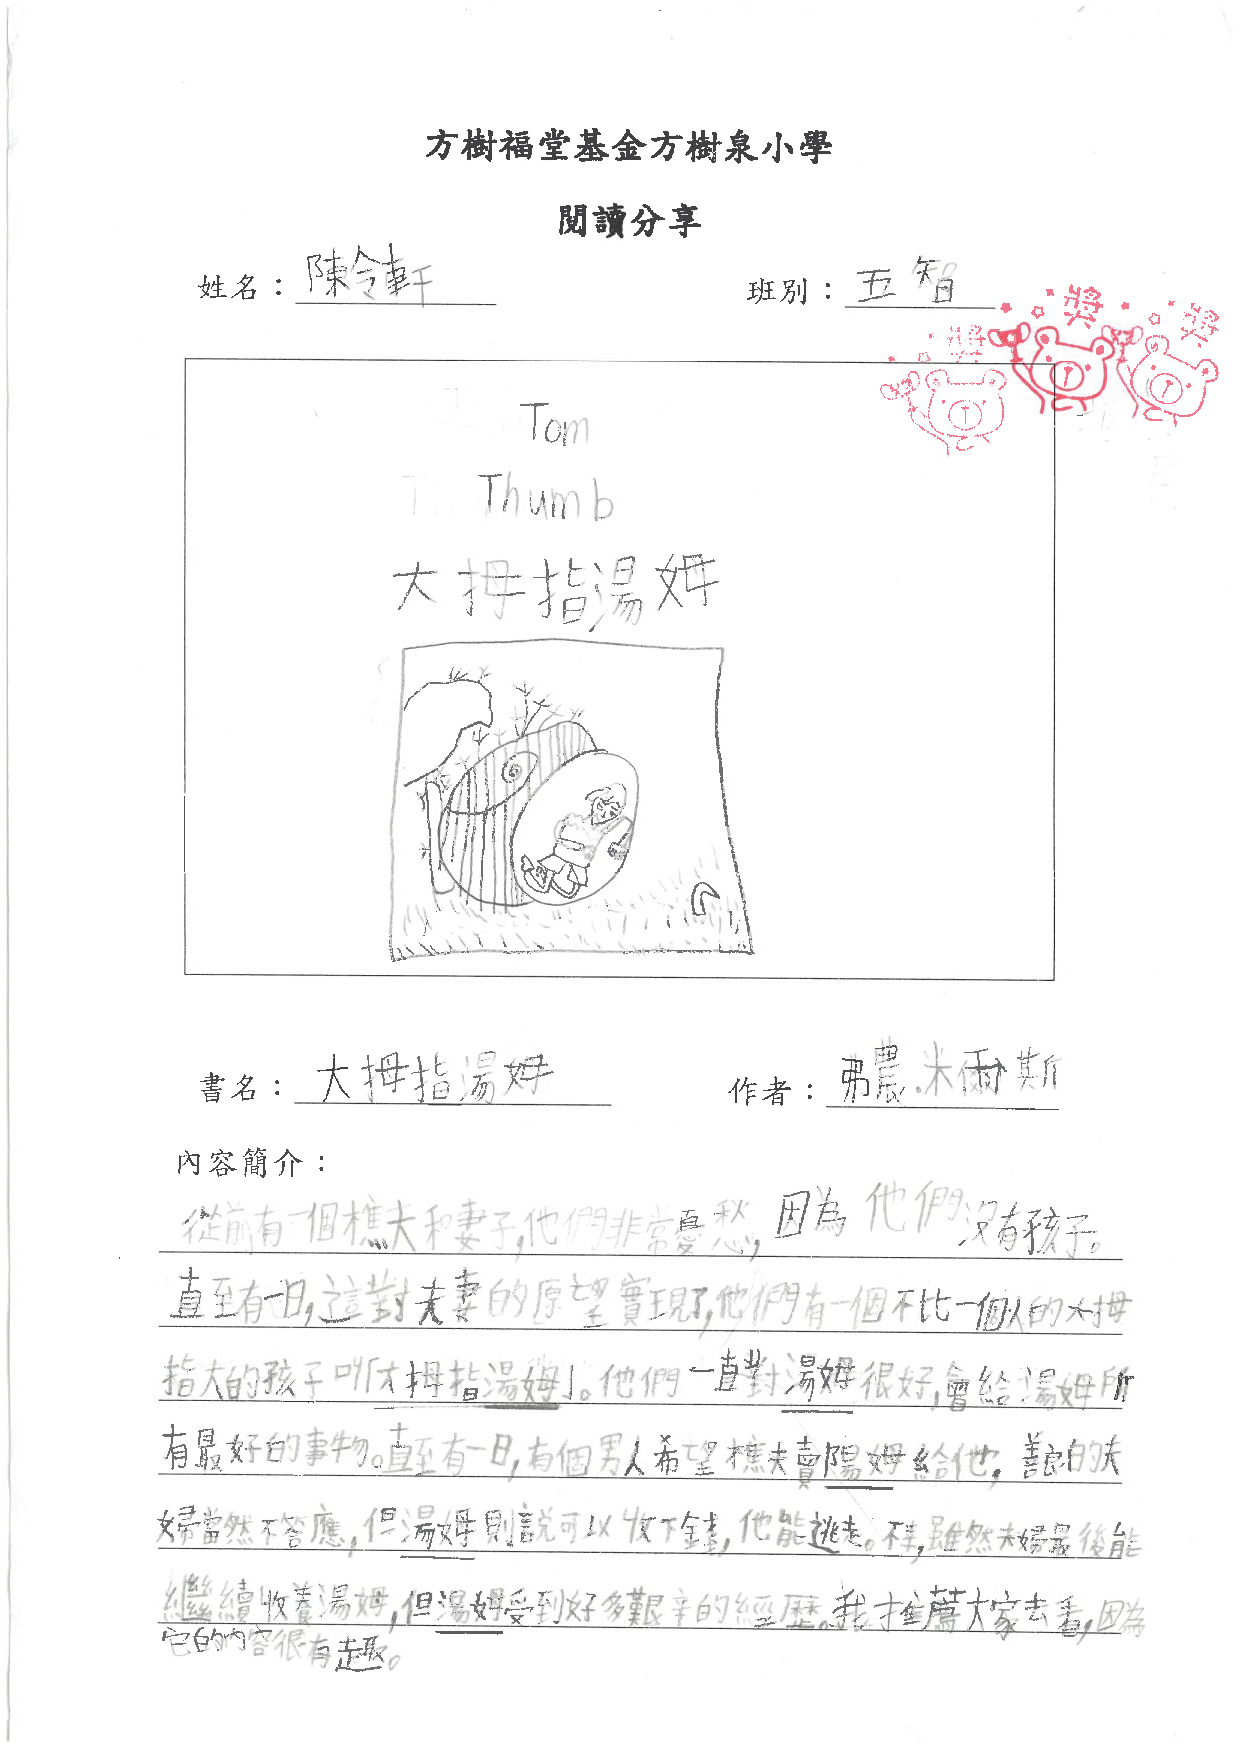 方樹福堂基金方樹泉小學
閱讀分享
姓名：陳令軒
班別：五智
獎 獎 獎
Tom
Thumb
大拇指湯姆
書名：大拇指湯姆
作者：弗農.米爾斯
內容簡介：
從前有一個樵夫和妻子,他們非常憂愁,因為他們沒有孩子。
直至有一日,這對夫妻的原望實現了,他們有一個不比一個人的大拇
指大的孩子叫「大拇指湯姆」。他們一直對湯姆很好,會給湯姆所
有最好的事物。直至有一日,有個男人希望樵夫賣陽姆給他,善良的夫
婦當然不答應,但湯姆則說可以收下錢,他能逃走。雖然夫婦最後能
繼續收養湯姆,但湯姆受到好多艱辛的經歷。我推薦大家去看,因為
它的內容很有趣。